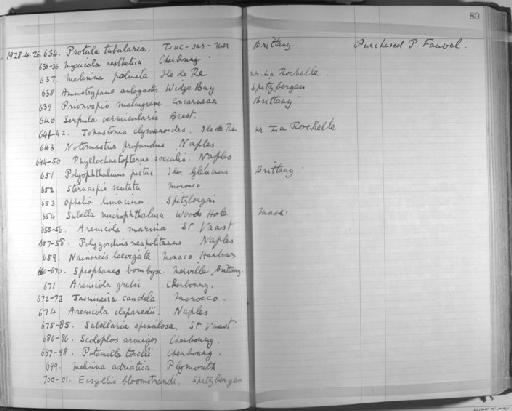 80
1928.4.26.634. Protula tubularia. Brittany Purchased P. Fauvel.
635-36 Myxicola aesthetica Cherbourg
637. Melinna palmata Ile de Ré nr. La Rochelle
638 Ammotrypane aulogaster Spitzbergen
639 Prionospio malmgreni Concarneau Brittany
640 Serpula vermicularis Brest
641-42. Johnstonia clymenoides. Ile de Ré nr La Rochelle
643 Notomastus profundus Naples
644-50 Phyllochaetopterus socialis. Naples
651 Polyophthalmus pictus Iles Glénans Brittany
652 Sternaspis scutata Monaco
653 Ophelia limacina Spitzbergen
654 Sabella microphthalma Woods Hole Mass.
655-56. Arenicola marina St Vaast
657-58. Polygordius neapolitanus Naples
659. Nainereis laevigata Monaco Harbour
Spiophanes bombyx. Brittany.
671 Arenicola grubii Cherbourg.
672-73 Jasmineira candela Monaco.
674 Arenicola claparedii Naples
675-85. Sabellaria spinulosa. St Vaast
686-96 Scoloplos armiger Cherbourg.
697-98. Potamilla torelli Cherbourg.
699. Melinna adriatica Plymouth
700-01. Spitzbergen